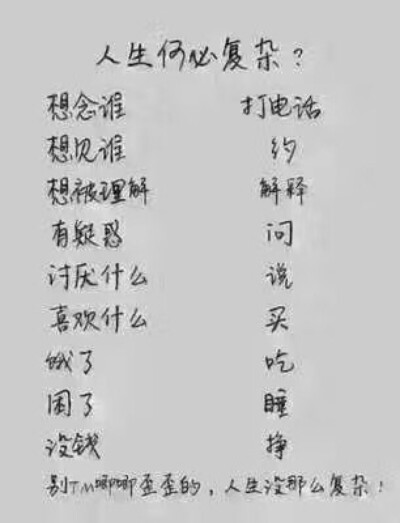 人生何必复杂？
想念谁 打电话
想见谁 约
想被理解 解释
有疑惑 问
讨厌什么 说
喜欢什么 买
饿了 吃
困了 睡
没钱 挣
别TM唧唧歪歪的，人生没那么复杂！